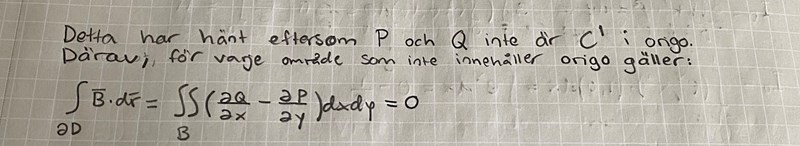 Detta har hänt eftersom P och Q inte är C¹ i origo.
Därav, för varje område som inte innehåller origo gäller:
∫_{∂D} B̄·dr̄ = ∬_B (∂Q/∂x - ∂P/∂y) dxdy = 0